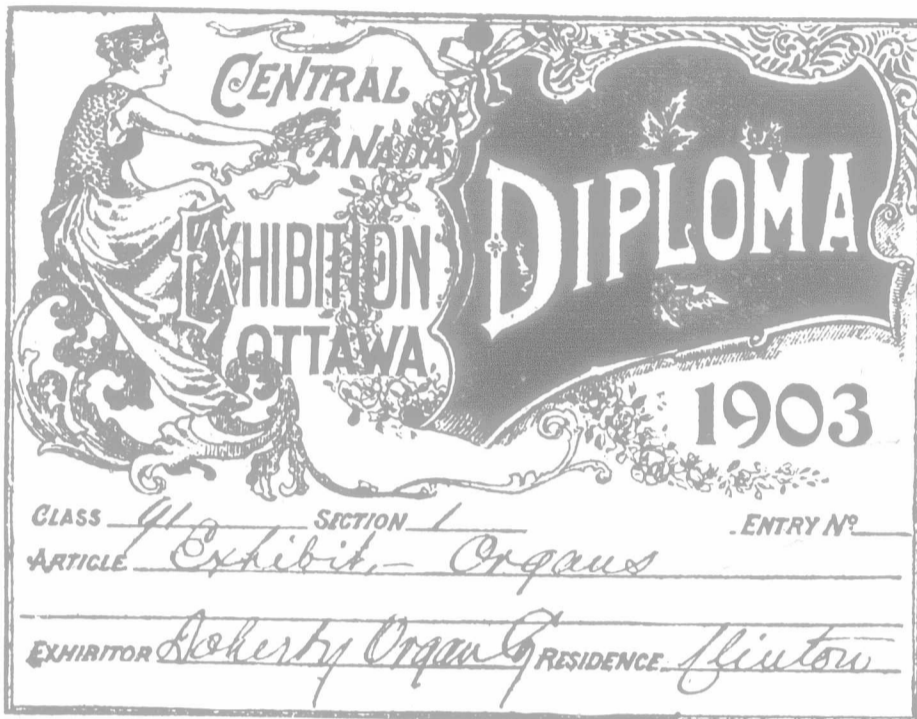 CENTRAL
CANADA
EXHIBITION
OTTAWA
DIPLOMA
1903
CLASS 41 SECTION 1 ENTRY Nº
ARTICLE Exhibit, – Organs
EXHIBITOR Doherty Organ Co RESIDENCE Clinton